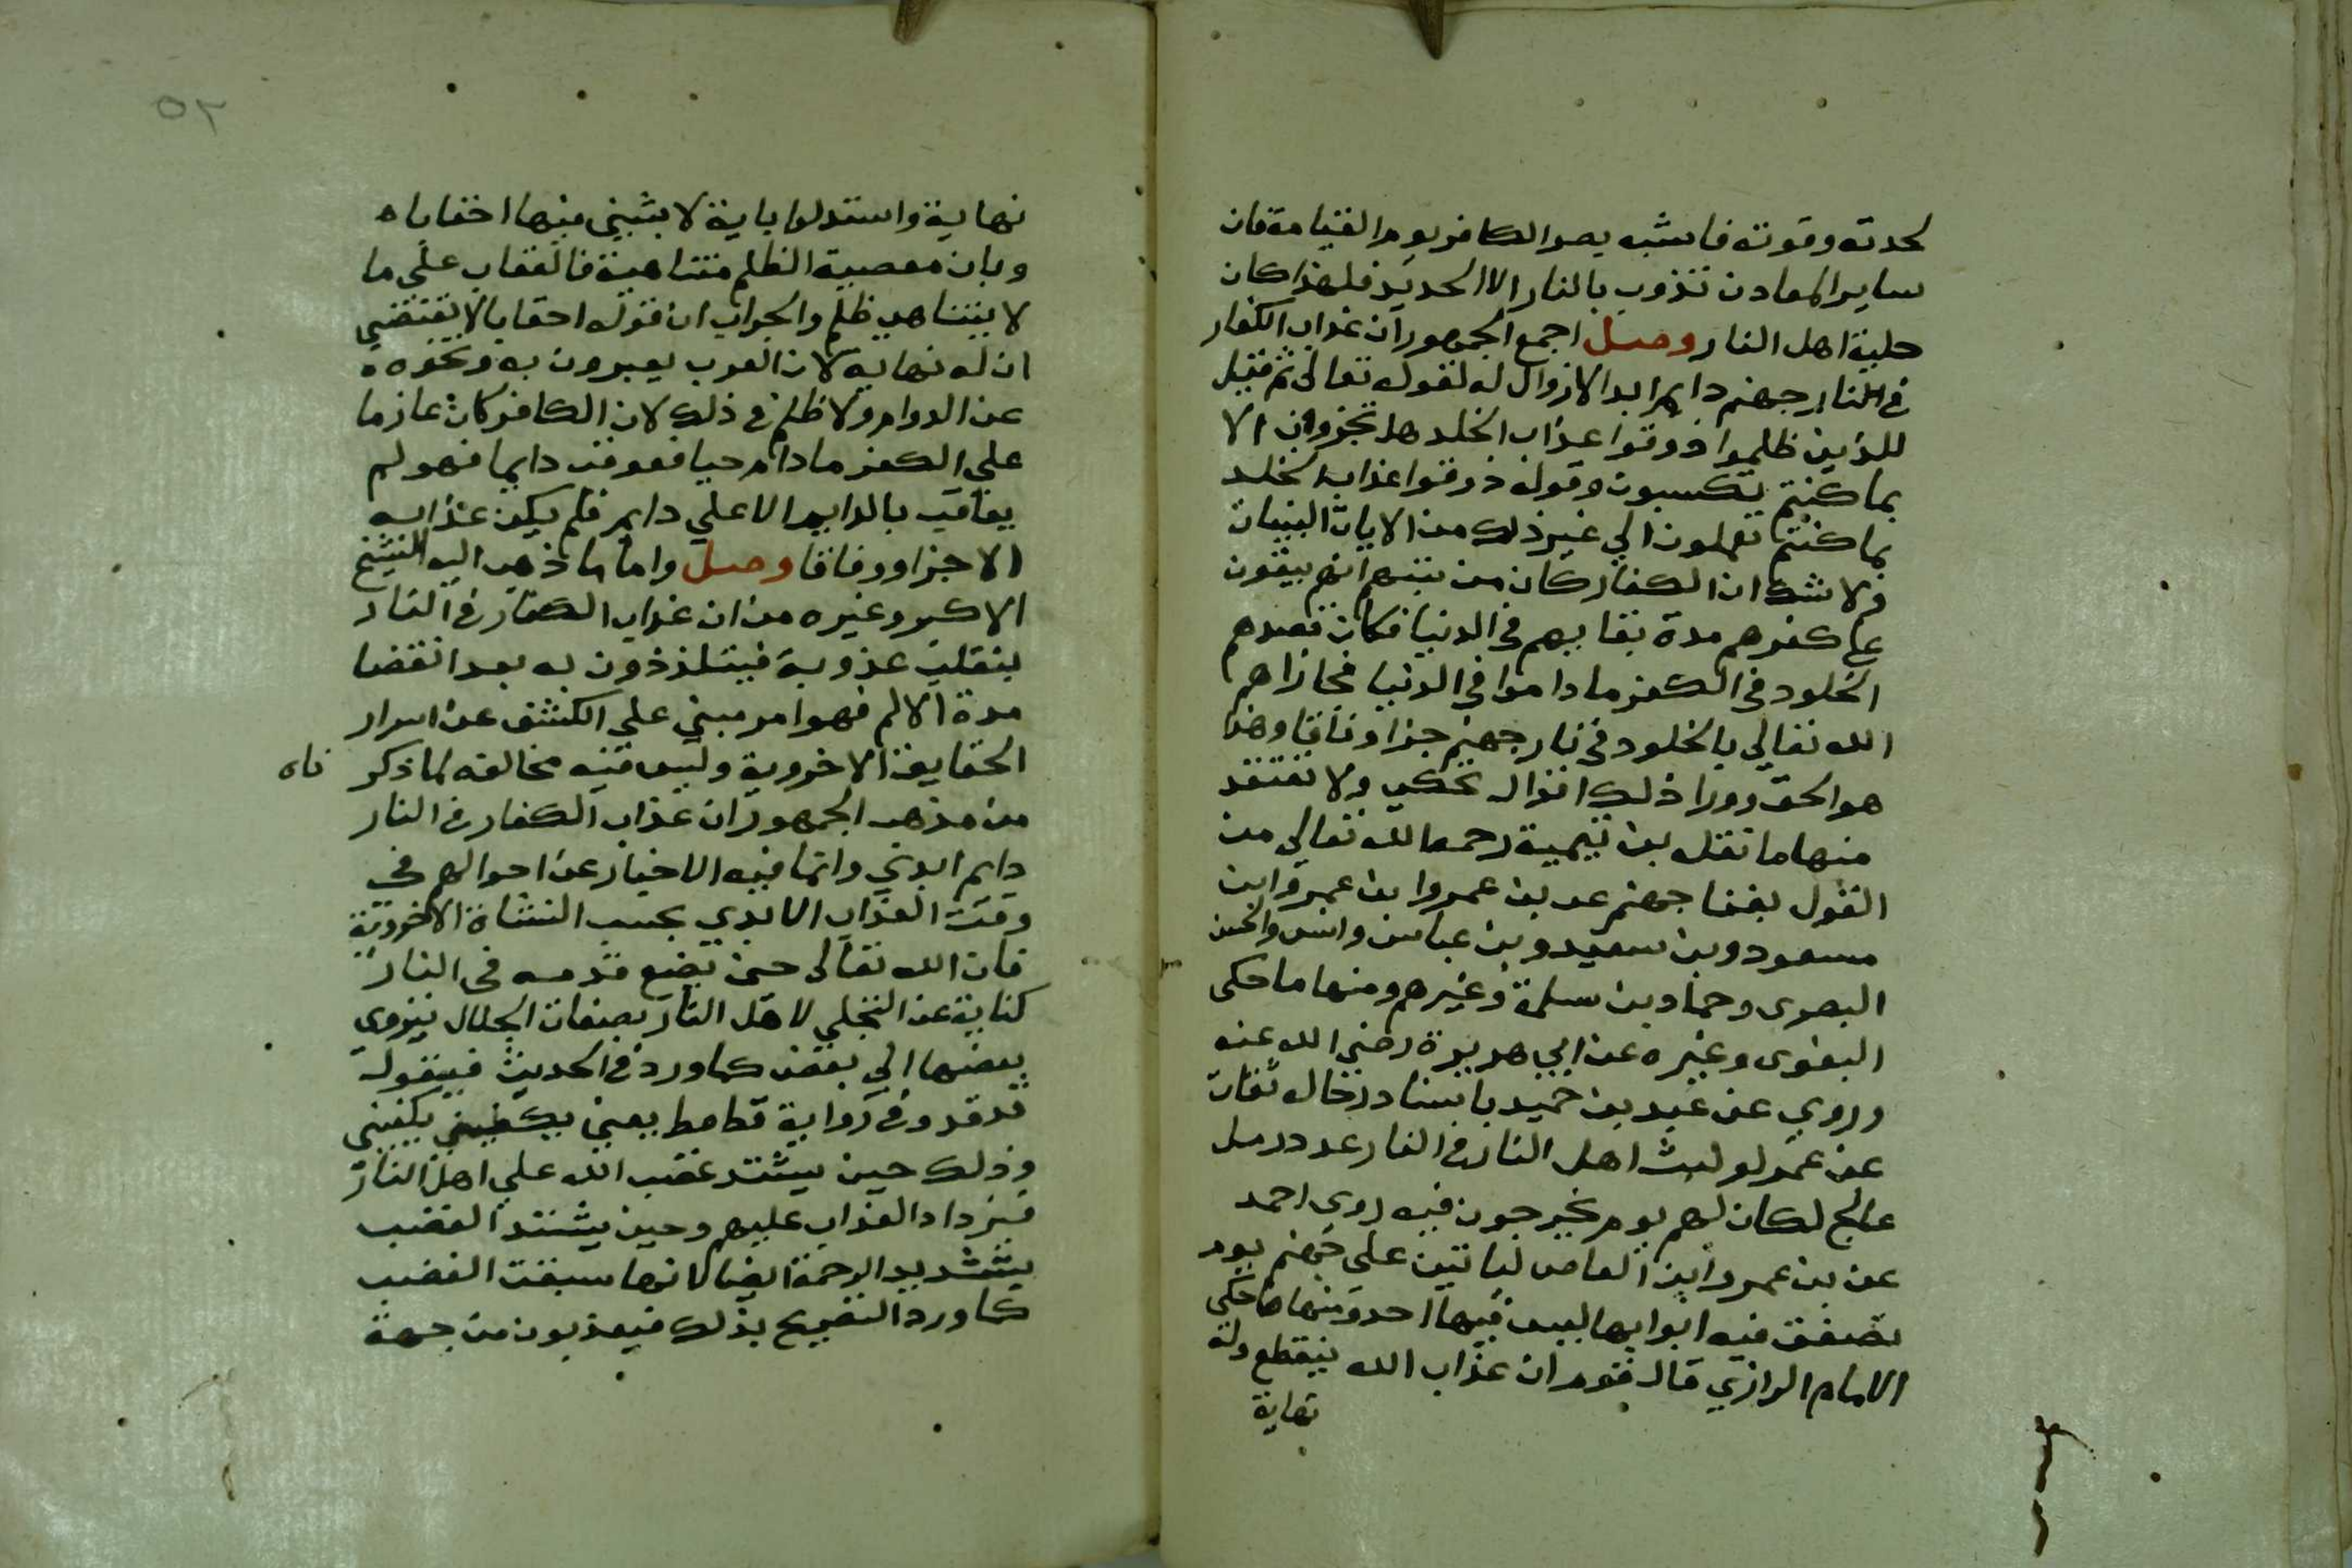 لحدته وقوته فاشبه بصر الكافر يوم القيامة فان
ساير المعادن تذوب بالنار الا الحديد فلهذا كان
حلية اهل النار وصل اجمع الجمهور ان عذاب الكفار
في النار جهنم دايم ابد الا زوال له لقوله تعالى ثم قيل
للذين ظلموا ذوقوا عذاب الخلد هل تجزون الا
بما كنتم تكسبون وقوله ذوقوا عذاب الخلد
بما كنتم تعملون الي غير ذلك من الايات البينات
ولا شك ان الكفار كان من نيتهم انهم يبقون
على كفرهم مدة بقايهم في الدنيا فكان قصدهم
الخلود في الكفر ما داموا في الدنيا فجازاهم
الله تعالي بالخلود في نار جهنم جزا وفاقا وهذا
هو الحق وورا ذلك اقوال تحكي ولا تعتقد
منها ما نقله بن تيمية رحمه الله تعالي من
القول بفنا جهنم عد بن عمروا بن عمر وابن
مسعود وبن سعيد وبن عباس وانس والحسن
البصرى وحماد بن سلمة وغيرهم ومنها ما حكى
البغوى وغيره عن ابي هريرة رضي الله عنه
وروي عن عبد بن حميد باسناد رجاله ثقات
عن عمر لو لبث اهل النار في النار عدد رمل
عالج لكان لهم يوم يخرجون فيه روى احمد
عن بن عمر وابن العاص لياتين على جهنم يوم
تصفق فيه ابوابها ليس فيها احد ومنها ما حكى
الامام الرازي قال قوم ان عذاب الله ينقطع وله
نهاية
٥٢
نهاية واستدلوا باية لابثين فيها احقابا ه
وبان معصية الظلم متناهية فالعقاب علي ما
لا يتناهى ظلم والجواب ان قوله احقابا لا يقتضي
ان له نهاية لان العرب يعبرون به ونحوه ه
عن الدوام ولا ظلم في ذلك لان الكافر كان عازما
علي الكفر ما دام حيا فعوقب دايما فهو لم
يعاقب بالدايم الا علي دايم فلم يكن عذابه
الا جزا ووفاقا وصل واما ما ذهب اليه الشيخ
الاكبر وغيره من ان عذاب الكفار في النار
ينقلب عذوبة فيتلذذون به بعد انقضا
مدة الالم فهو امر مبني علي الكشف عن اسرار
الحقايق الاخروية وليس فيه مخالفه لما ذكر ناه
من مذهب الجمهور ان عذاب الكفار في النار
دايم ابدي وانما فيه الاخبار عن احوالهم في
وقت العذاب الابدي بحسب النشاة الاخروية
فان الله تعالى حين يضع قدمه في النار
كناية عن التجلي لاهل النار بصفات الجلال ينزوي
بعضها الي بعض كما ورد في الحديث فيقول
قد قد وفي رواية قط قط يعني يكفيني يكفيني
وذلك حين يشتد غضب الله علي اهل النار
فيزداد العذاب عليهم وحين يشتد الغضب
يشتد بد الرحمة ايضا لانها سبقت الغضب
كما ورد التصريح بذلك فيعذبون من جهة